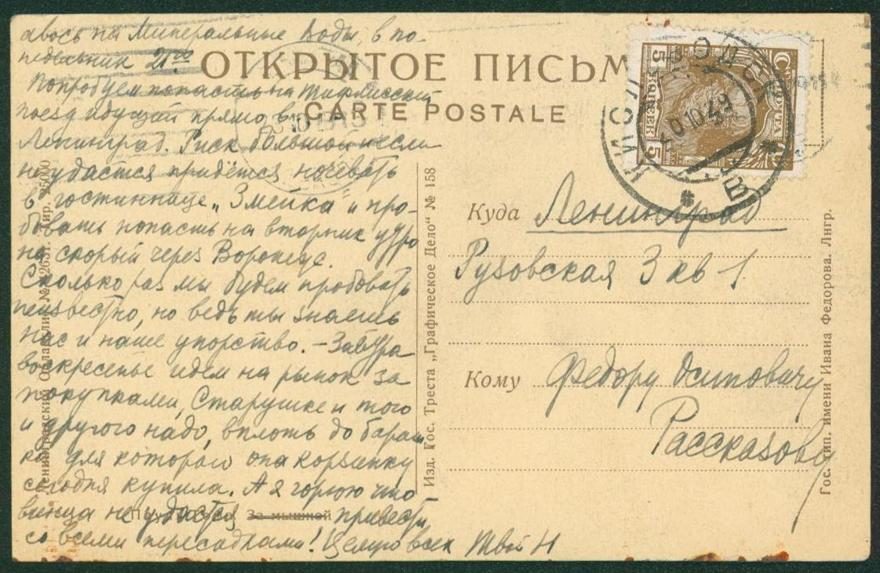 авось на Минеральные Воды, в по-
недельник 21:00
Попробуем попасть на Тифлисский
поезд идущий прямо в
Ленинград. Риск большой и если
не удастся придётся ночевать
в гостиннице „Змейка" и про-
бовать попасть на вторник утро
на скорый через Воронеж.
Сколько раз мы будем пробовать
неизвестно, но ведь ты знаешь
нас и наше упорство. – Завтра
воскресенье идем на рынок за
покупками, Старушке и того
и другого надо, вплоть до бараш
ка для которого она корзинку
сегодня купила. А я горюю что
винца не удастся привезти,
со всеми пересадками! Целую всех Твой Н
ОТКРЫТОЕ ПИСЬМ
CARTE POSTALE
ПОЧТА
5 КОПЕЕК 5
КИСЛОВОДСК
Куда Ленинград
Рузовская 3 кв 1.
Кому Федору Осиповичу
Рассказову
Изд. Гос. Треста „Графическое Дело" № 158
Гос. тип. имени Ивана Федорова. Лнгр.